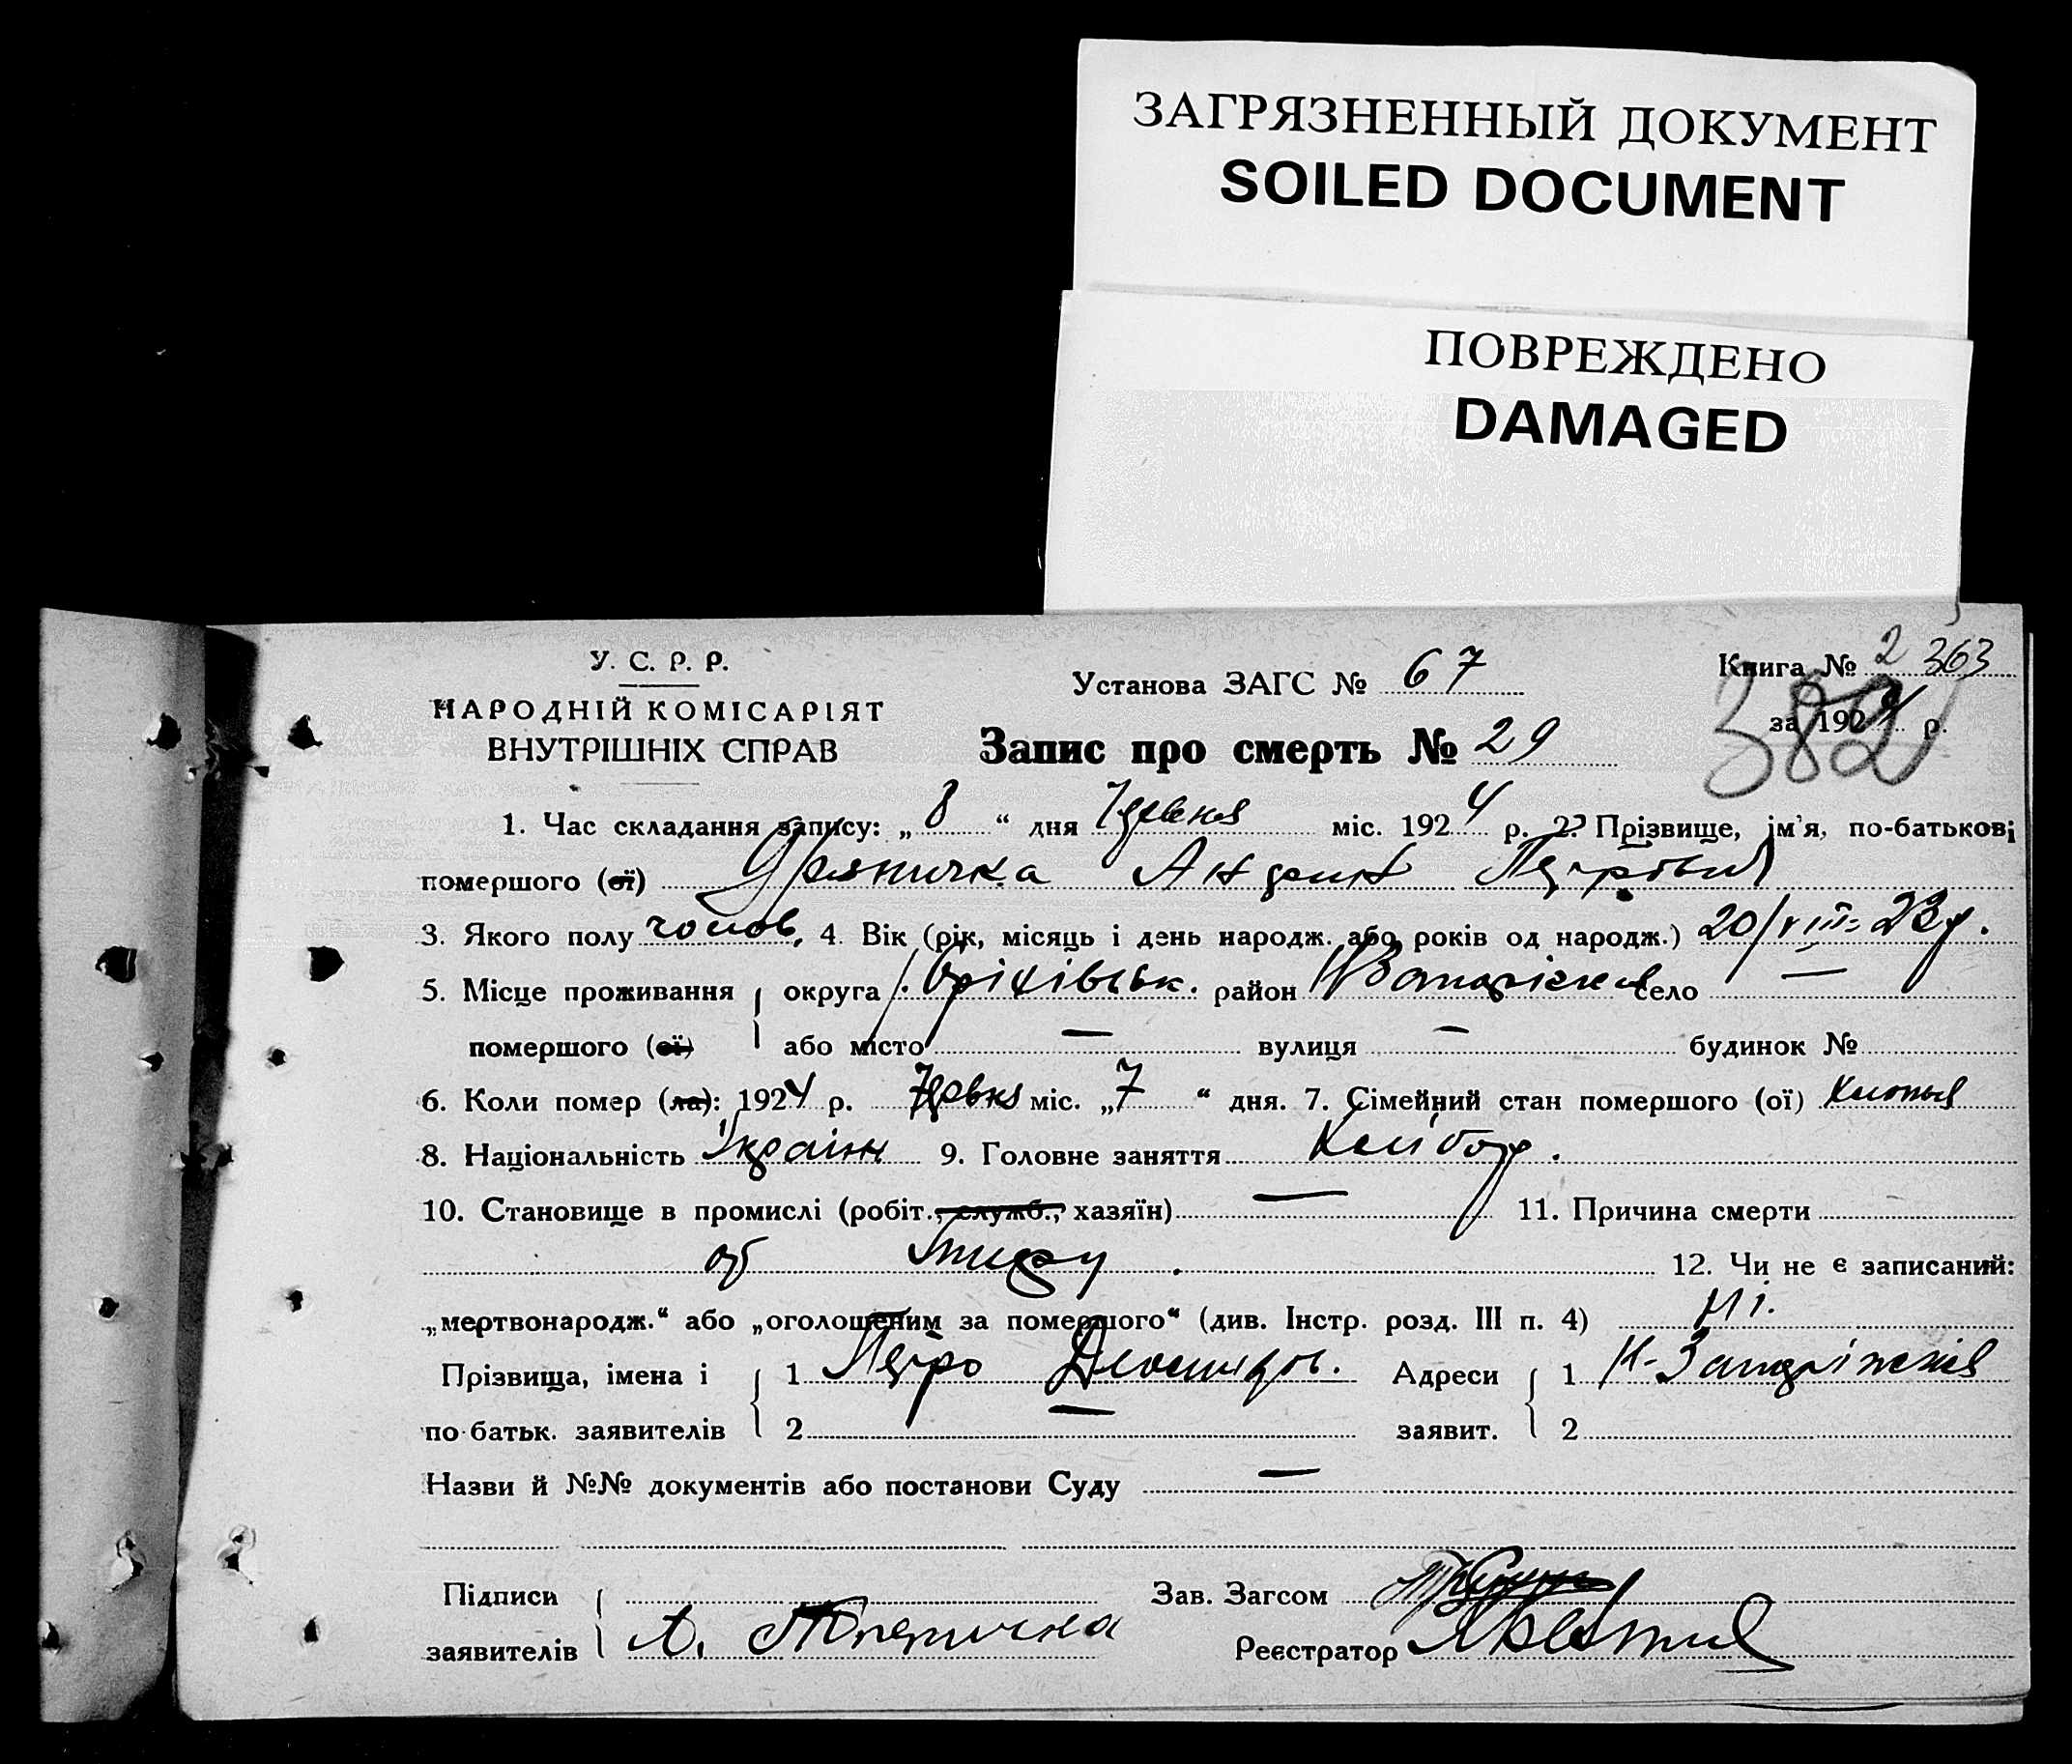 ЗАГРЯЗНЕННЫЙ ДОКУМЕНТ
SOILED DOCUMENT
ПОВРЕЖДЕНО
DAMAGED
У. С. Р. Р.
НАРОДНІЙ КОМІСАРІЯТ
ВНУТРІШНІХ СПРАВ
Установа ЗАГС № 67
Книга № 2 363
за 1924 р.
382
Запис про смерть № 29
1. Час складання запису: „ 8 “ дня міс. 1924 р. 2. Прізвище, ім'я, по-батькові
помершого (ої) Андрій Петрович
3. Якого полу чолов. 4. Вік (рік, місяць і день народж. або років од народж.) 20/VIII-23р.
5. Місце проживання округа Оріхівськ. район село —
помершого (ої) або місто — вулиця — будинок №
6. Коли помер (ла): 1924 р. міс. „ 7 “ дня. 7. Сімейний стан помершого (ої)
8. Національність Україн 9. Головне заняття Хлібор.
10. Становище в промислі (робіт., служб., хазяїн) — 11. Причина смерти
од 12. Чи не є записаний:
„мертвонародж.“ або „оголошеним за помершого“ (див. Інстр. розд. III п. 4) Ні.
Прізвища, імена і 1 Петро Адреси 1
по-батьк. заявителів 2 — заявит. 2
Назви й №№ документів або постанови Суду —
Підписи Зав. Загсом
заявителів Реєстратор